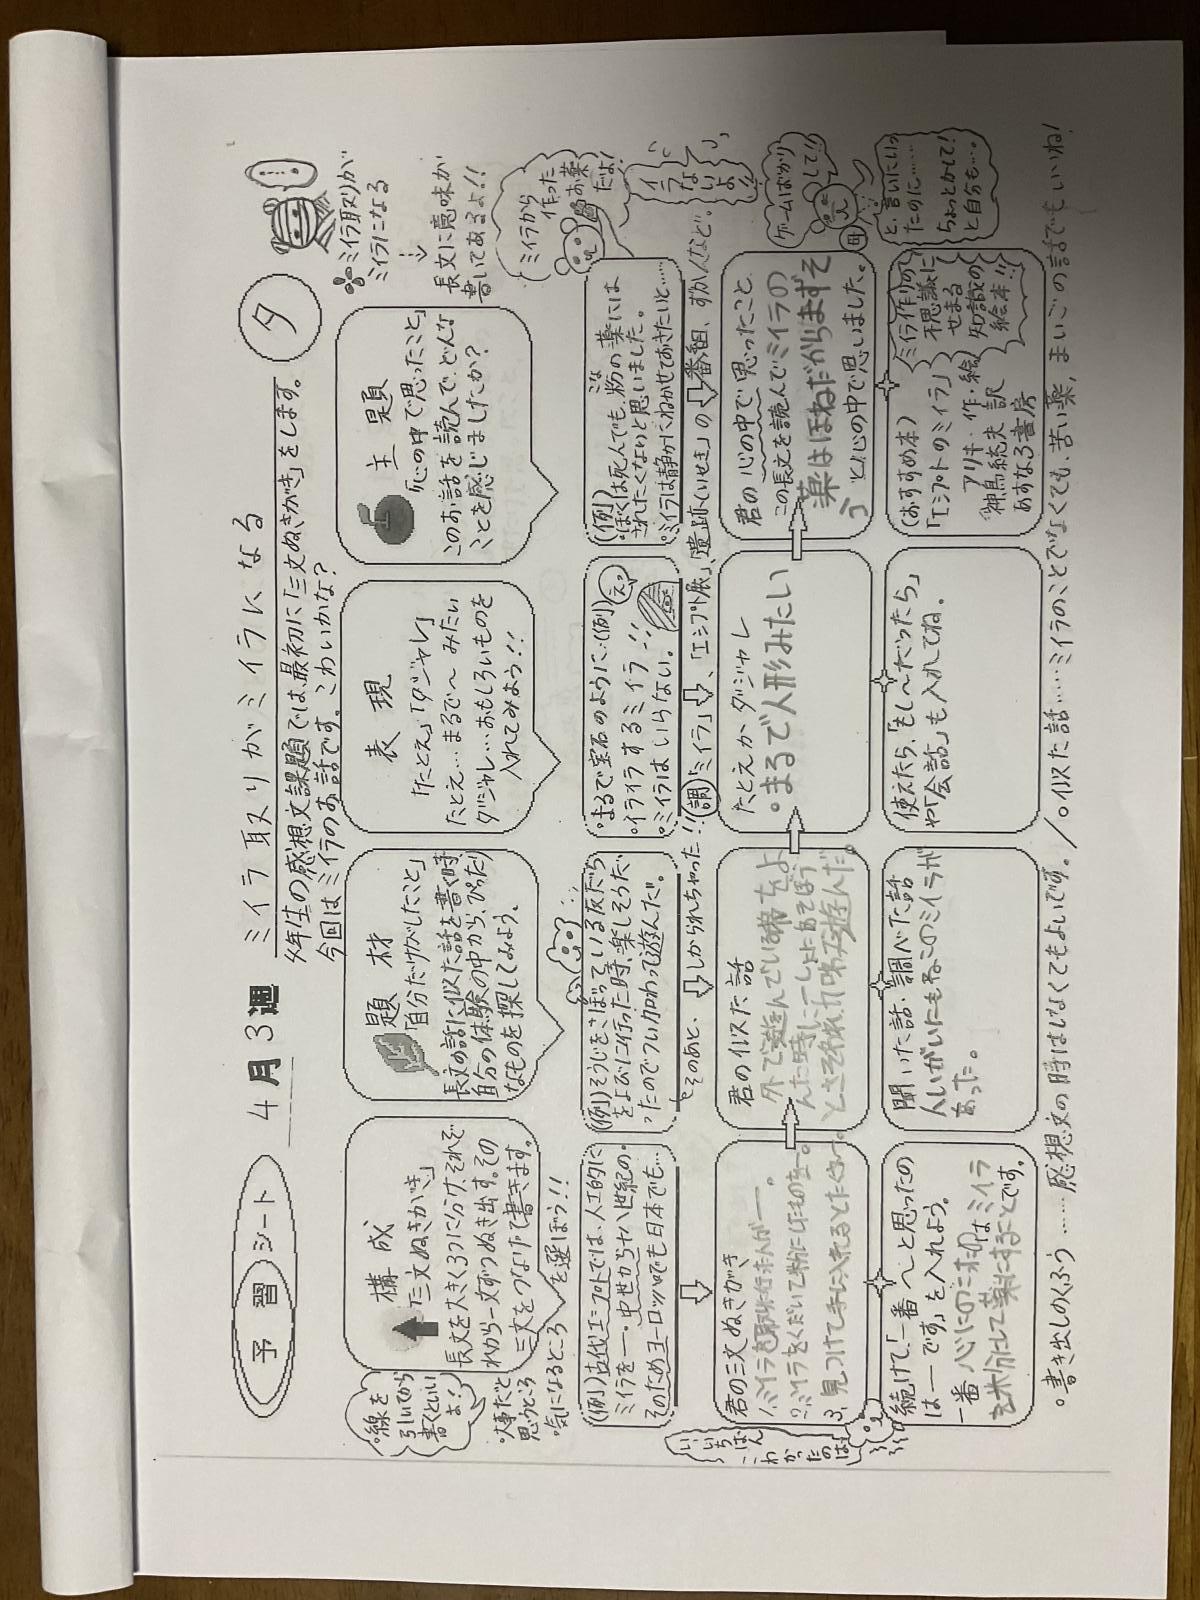 予習シート
4月3週
ミイラ取りがミイラになる
タ
年生の感想文課題では、最初に「三文ぬきがき」をします。
今回はミイラのお話です。こわいかな？
ミイラ取りが
ミイラになる
長文に意味が
書いてあるよ！！
構成
「三文ぬきがき」
長文を大きく3つに分け、それぞ
れから一文ずつぬき出す。その
三文をつなげて書きます。
・線を
引いてから
書くといい
よ！
・大事だと
思うところ
・気になるところ
を選ぼう！！
題材
「自分だけがしたこと」
長文の話に似た話を書く時
自分の体験の中から、ぴったり
なものを探してみよう。
表現
「たとえ」「ダジャレ」
たとえ…まるで～みたい
ダジャレ…おもしろいものを
入れてみよう！！
主題
「心の中で思ったこと」
このお話を読んで、どんな
ことを感じましたか？
ミイラから
作った
お薬
だよ！
イラ
ない
よ！！
(例)古代エジプトでは、人工的に
ミイラを―・中世から十八世紀の、
そのためヨーロッパでも日本でも…
(例)そうじをさぼっている友だち
をよびに行った時、楽しそうだ
ったのでつい加わって遊んだ。
そのあと、しかられちゃった！！
・まるで宝石のように…(例)
・イライラするミイラ…！！
・ミイラはいらない。
えっ
(例)
・ぼくは死んでも、粉の薬には
こな
されたくないと思いました。
・ミイラは静かにねかせておきたいと……
調「ミイラ」、「エジプト展」、遺跡(いせき)の番組、ずかんなど。
君の三文ぬきがき
1.ミイラを取りに行く本人が―。
2.ミイラをくだいて粉にしたものを―。
3.見つけて手に入れるとたくさ―。
君の似た話
外で遊んでいる弟をよ
んだ時にいっしょにあそぼう
とさそわれ、
遊んだ。
たとえかダジャレ
・まるで人形みたい
君の心の中で思ったこと
この長文を読んでミイラの
薬はほねだからまずそ
う
と心の中で思いました。
ゲームばかり
して！！
母
と、言いにいっ
たのに……
ちょっとかして！
と自分も…。
続けて「一番～と思ったの
は――です」を入れよう。
一番心にのこったのはミイラ
を粉にして薬にすることです。
いちばん
こわ
かっ
たの
は
聞いた話・調べた話
人いがいにもねこのミイラが
あった。
使えたら、「もし～だったら」
や「会話」も入れてね。
(おすすめ本)
「エジプトのミイラ」
アリキ 作・絵
神鳥統夫 訳
あすなろ書房
ミイラ作りの
不思議に
せまる
知識の
絵本！！
。書き出しのくふう……感想文の時はしなくてもよいです。／。似た話……ミイラのことでなくても、苦い薬、まいごの話でもいいね！